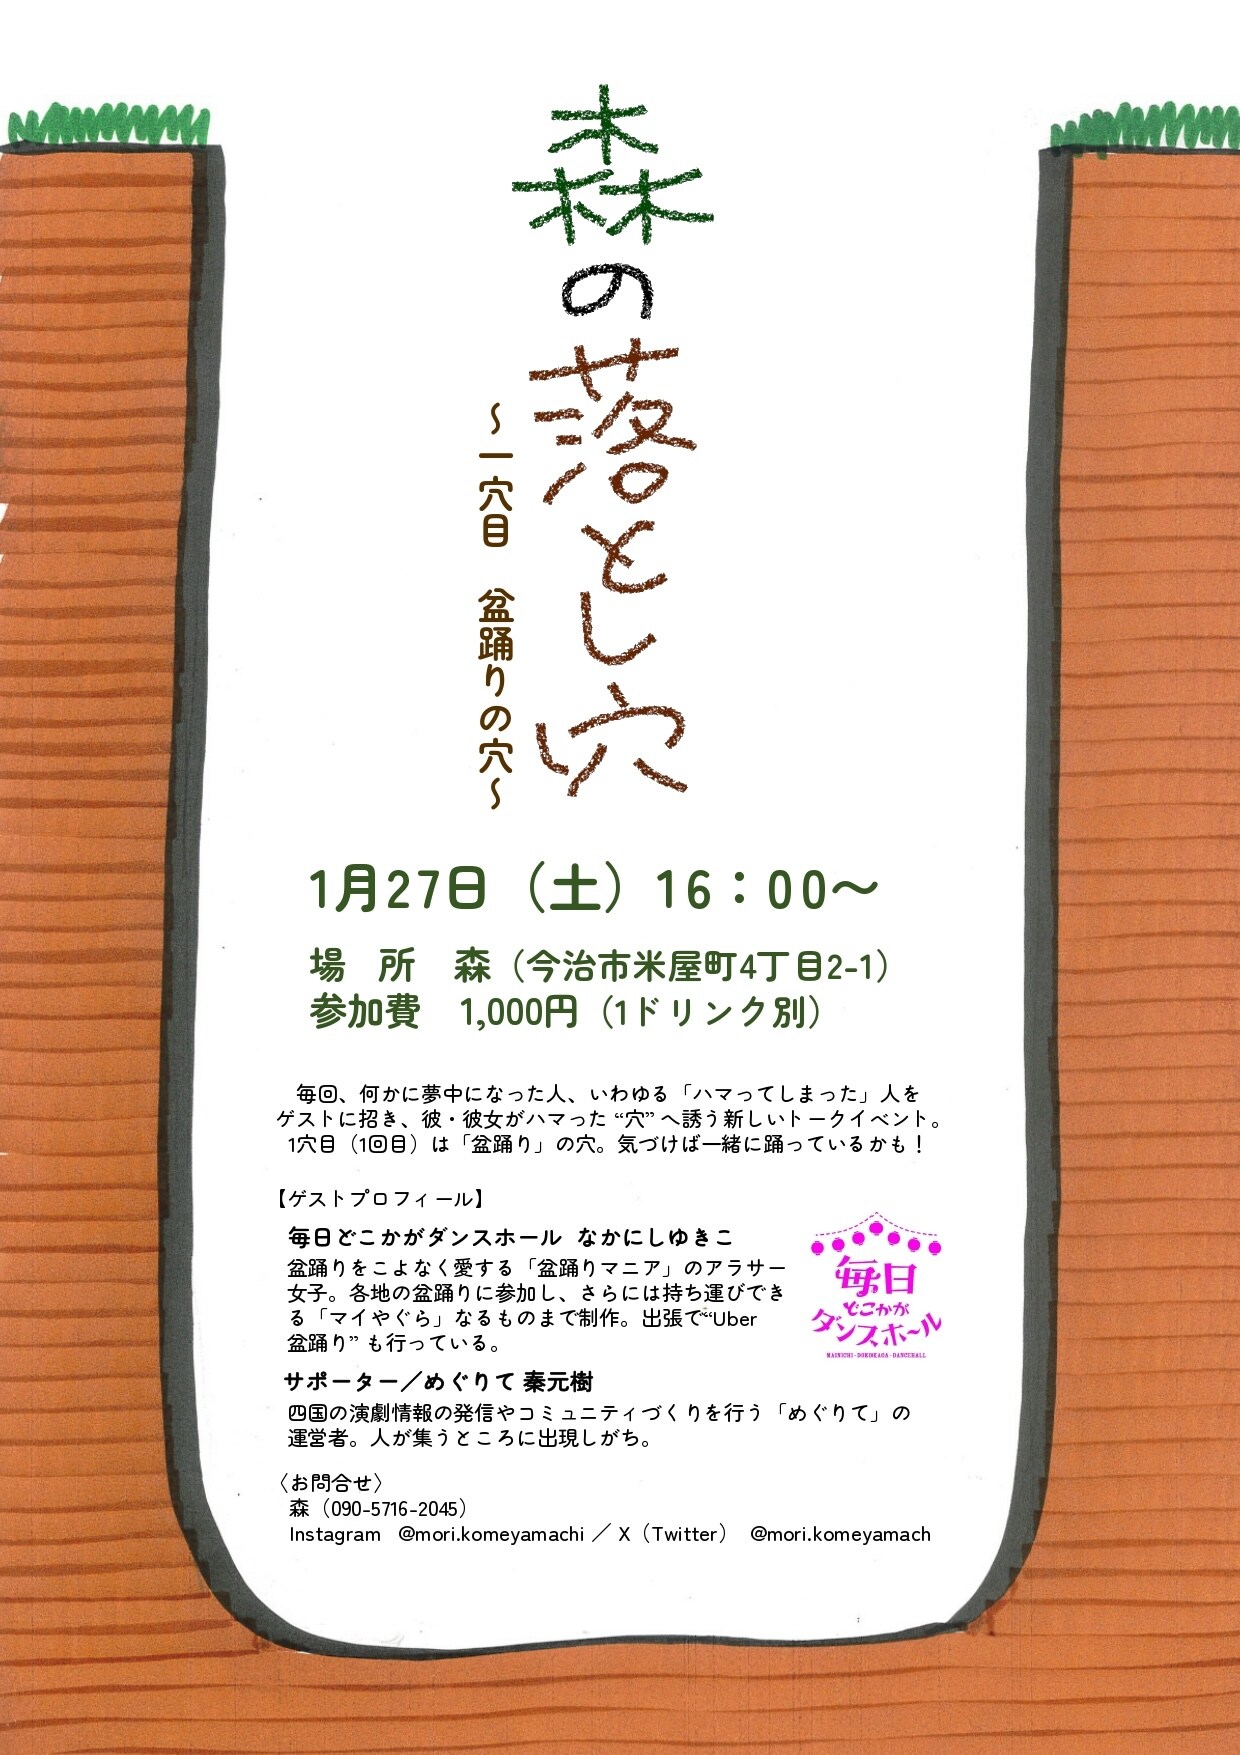 森の落とし穴
～一穴目　盆踊りの穴～
1月27日（土）16：00～
場　所　森（今治市米屋町4丁目2-1）
参加費　1,000円（1ドリンク別）
毎回、何かに夢中になった人、いわゆる「ハマってしまった」人を
ゲストに招き、彼・彼女がハマった“穴”へ誘う新しいトークイベント。
1穴目（1回目）は「盆踊り」の穴。気づけば一緒に踊っているかも！
【ゲストプロフィール】
毎日どこかがダンスホール　なかにしゆきこ
盆踊りをこよなく愛する「盆踊りマニア」のアラサー
女子。各地の盆踊りに参加し、さらには持ち運びでき
る「マイやぐら」なるものまで制作。出張で“Uber
盆踊り”も行っている。
毎日
どこかが
ダンスホール
MAINICHI・DOKOKAGA・DANCEHALL
サポーター／めぐりて 秦元樹
四国の演劇情報の発信やコミュニティづくりを行う「めぐりて」の
運営者。人が集うところに出現しがち。
〈お問合せ〉
森（090-5716-2045）
Instagram　@mori.komeyamachi ／ X（Twitter）　@mori.komeyamach